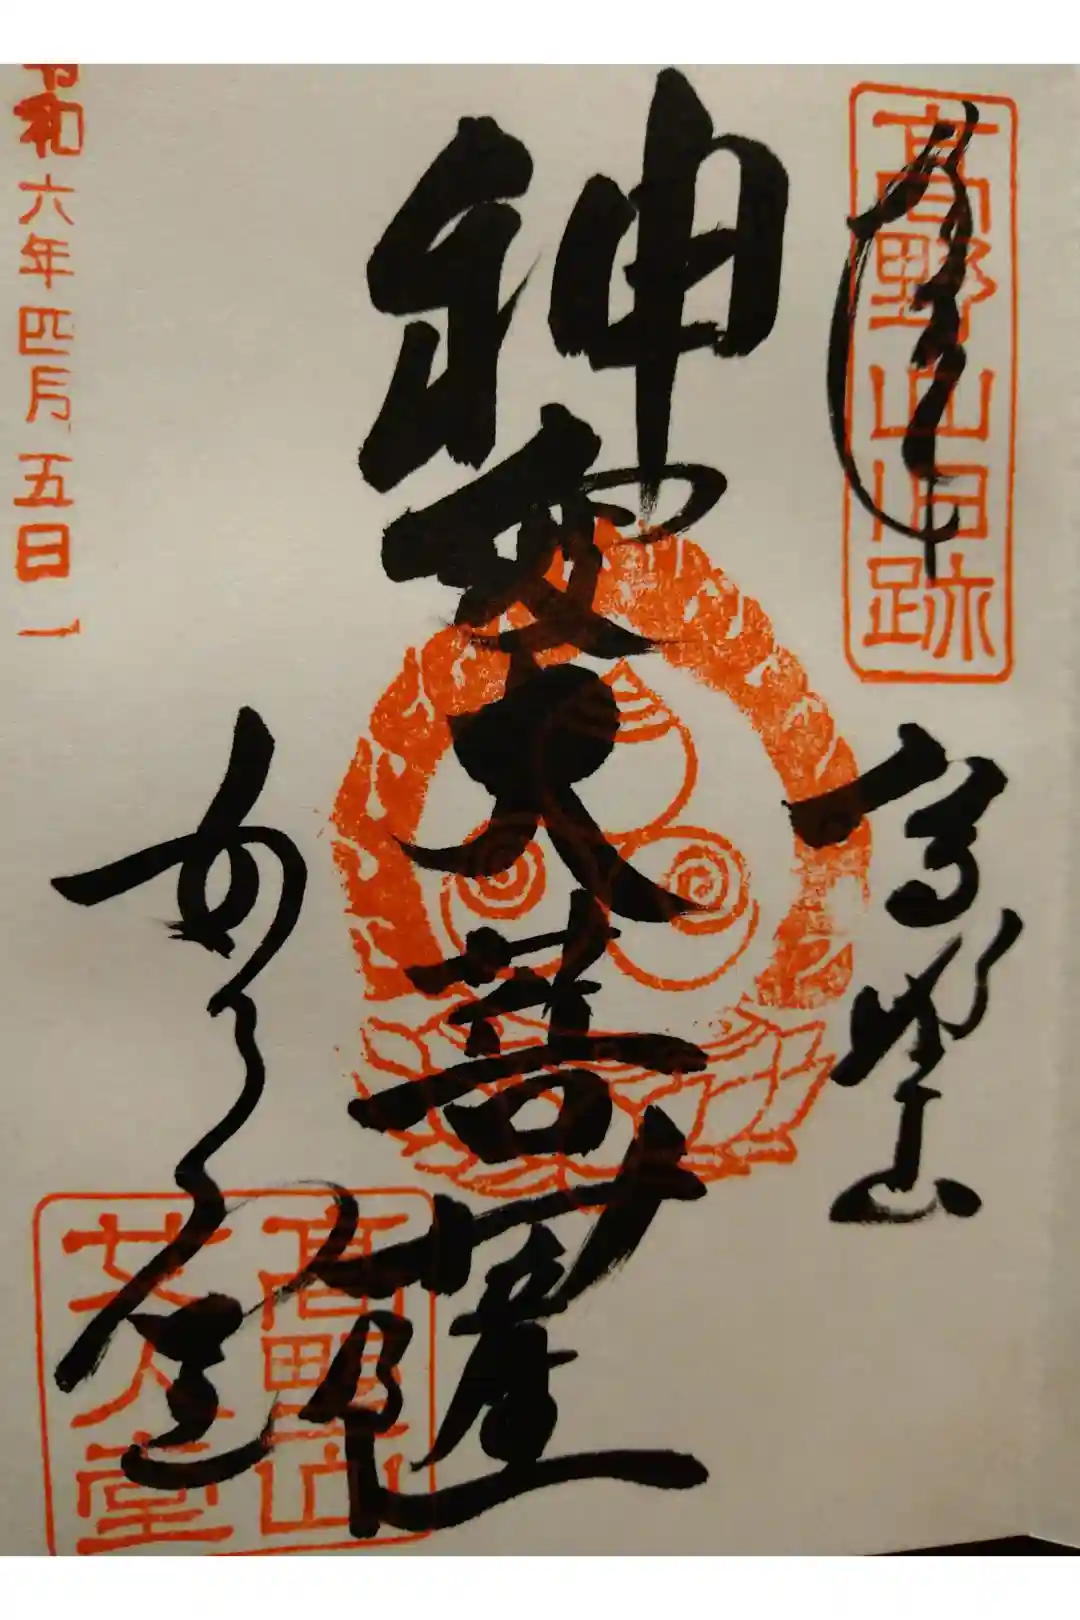 高野山旧跡
奉拝
高野山
神変大菩薩
高野山
女人堂
女人堂
令和六年四月五日